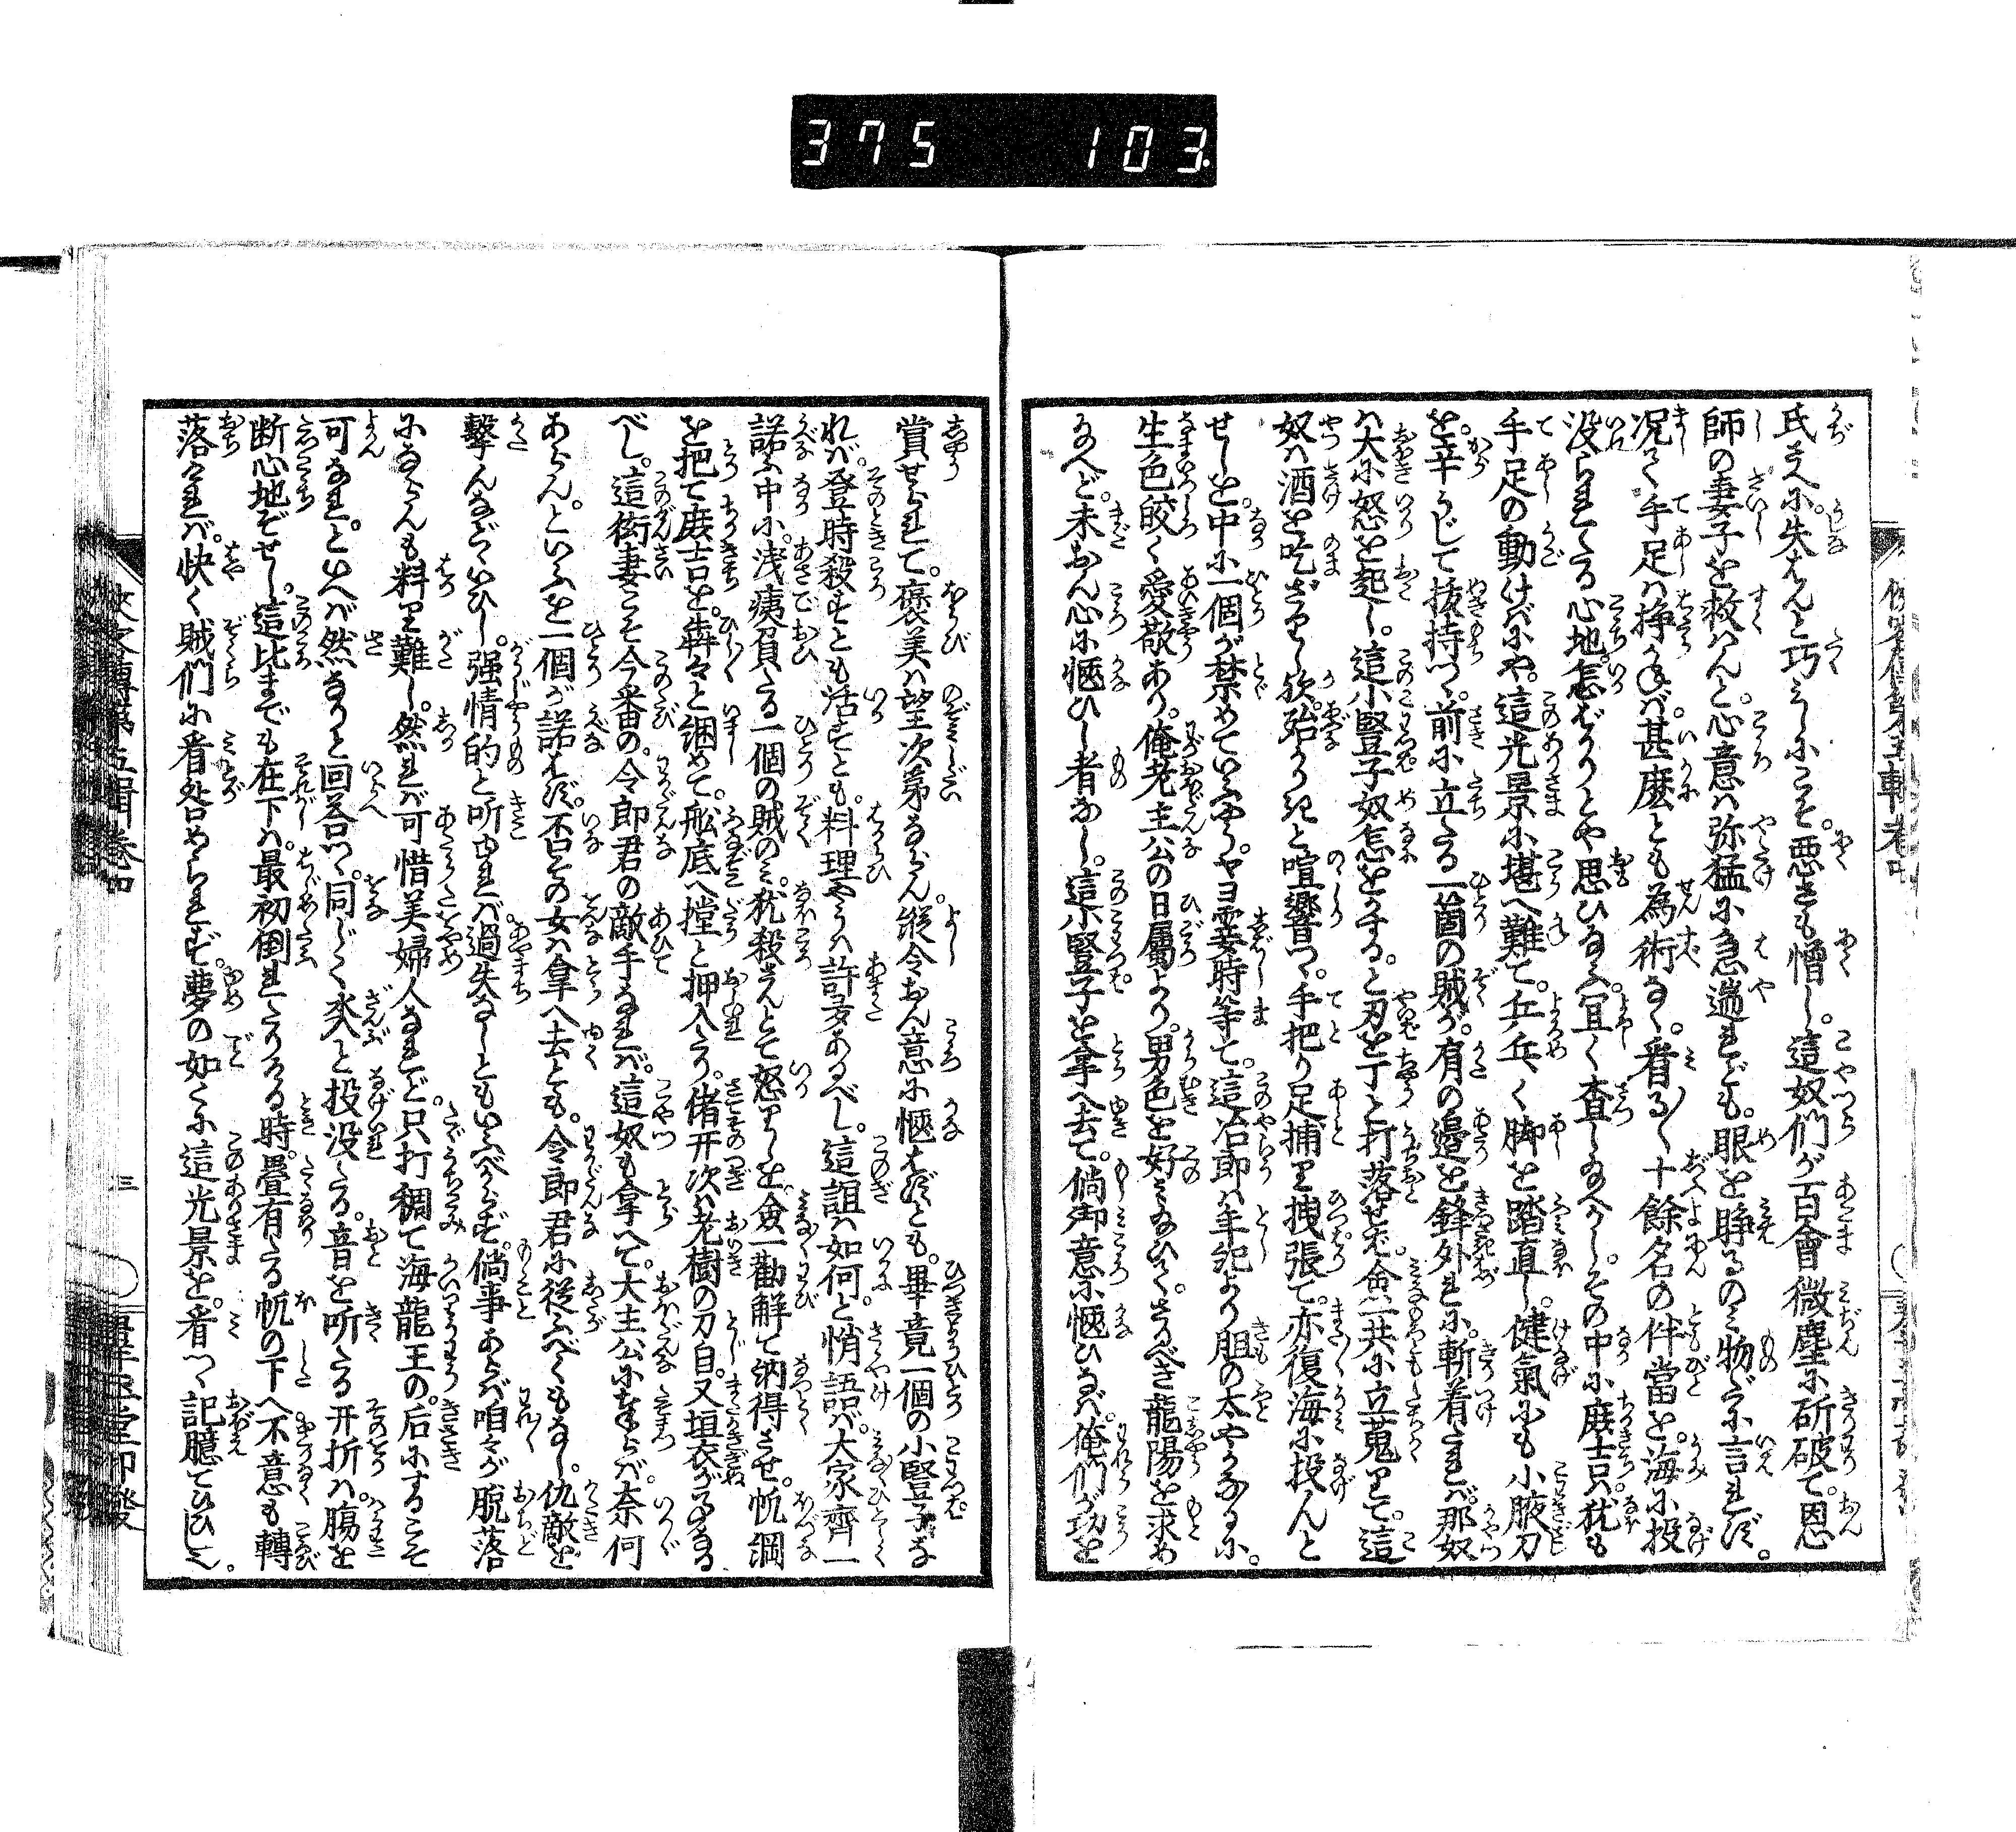 375 103.
氏さへに。失はんと巧みしにこそ。悪さも憎し。這奴們が百會微塵に斫破て。恩
師の妻子を救はんと。心意は弥猛に急遄れども。眼を睁るのみ物だに言れず。
况て手足は挣かねば。甚麽とも為術なく。看る〳〵十餘名の伴當を。海に投
没らるゝ心地怎ばかりとや思ひ給ふ。冝く査し給へかし。その中に庻吉只。犹も
手足の動けばにや。這光景に堪へ難て。乒乓く脚を踏直し。健氣にも小腋刀
を。辛うじて抜持つゝ。前に立たる一箇の賊が。肩の邉を鋒外れに。斬着たれば。那奴
は大に怒を起し。這小豎子奴怎をかする。と刃を丁と打落せば。僉共に立蒐りて。這
奴は酒を吃ざりし欤。殆うかりきと喧響つゝ。手把り足捕り拽張て。亦復海に投んと
せしを。中に一個が禁めていふやう。ヤヨ霎時等て。這冶郎は年紀より胆の太やかなるに。
生色皎く愛敬あり。俺老主公の日属より。男色を好み給ひて。さるべき龍陽を求め
給へど。未おん心に愜ひし者なし。這小豎子を拿へ去て。倘御意に愜ひなば。俺們が功を
賞せられて。褒美は望次第ならん。縦令おん意に愜はずとも。畢竟一個の小豎子な
れば。登時殺すとも活すとも。料理やうは許多あるべし。這詛は如何。と悄語ば。大家齊一
諾ふ中に。浅痍負たる一個の賊のみ。犹殺さんとて怒りしを。僉勸解て納得させ。帆綱
を把て庻吉を。犇々と綑めて。舩底へ摚と押入たり。偖开次は老樹の刀自。又垣衣が事なる
べし。這衒妻こそ今番の。令郎君の敵手なれば。這奴も拿へて。大主公に奉らば。奈何
あらん。といふを一個が諾はず。否その女は拿へ去とも。令郎君に従ふべくもなし。仇敵を
擊んなどゝいひし。强情的と听ぬれば。過失なしともいふべからず。倘事あらば咱々が脫落
にならんも料り難し。然れば可惜美婦人なれど。只打稠て海龍王の。后にするこそ
可なれ。といへば然なりと回荅つゝ。同じく氽と投没たる。音を听たる开折は。膓を
断心地ぞせし。這比までも在下は。最初倒れたりける時。畳有たる帆の下へ不意も轉
落ければ。快く賊們に看咎められず。夢の如くに這光景を。看つゝ記臆てひひしに。